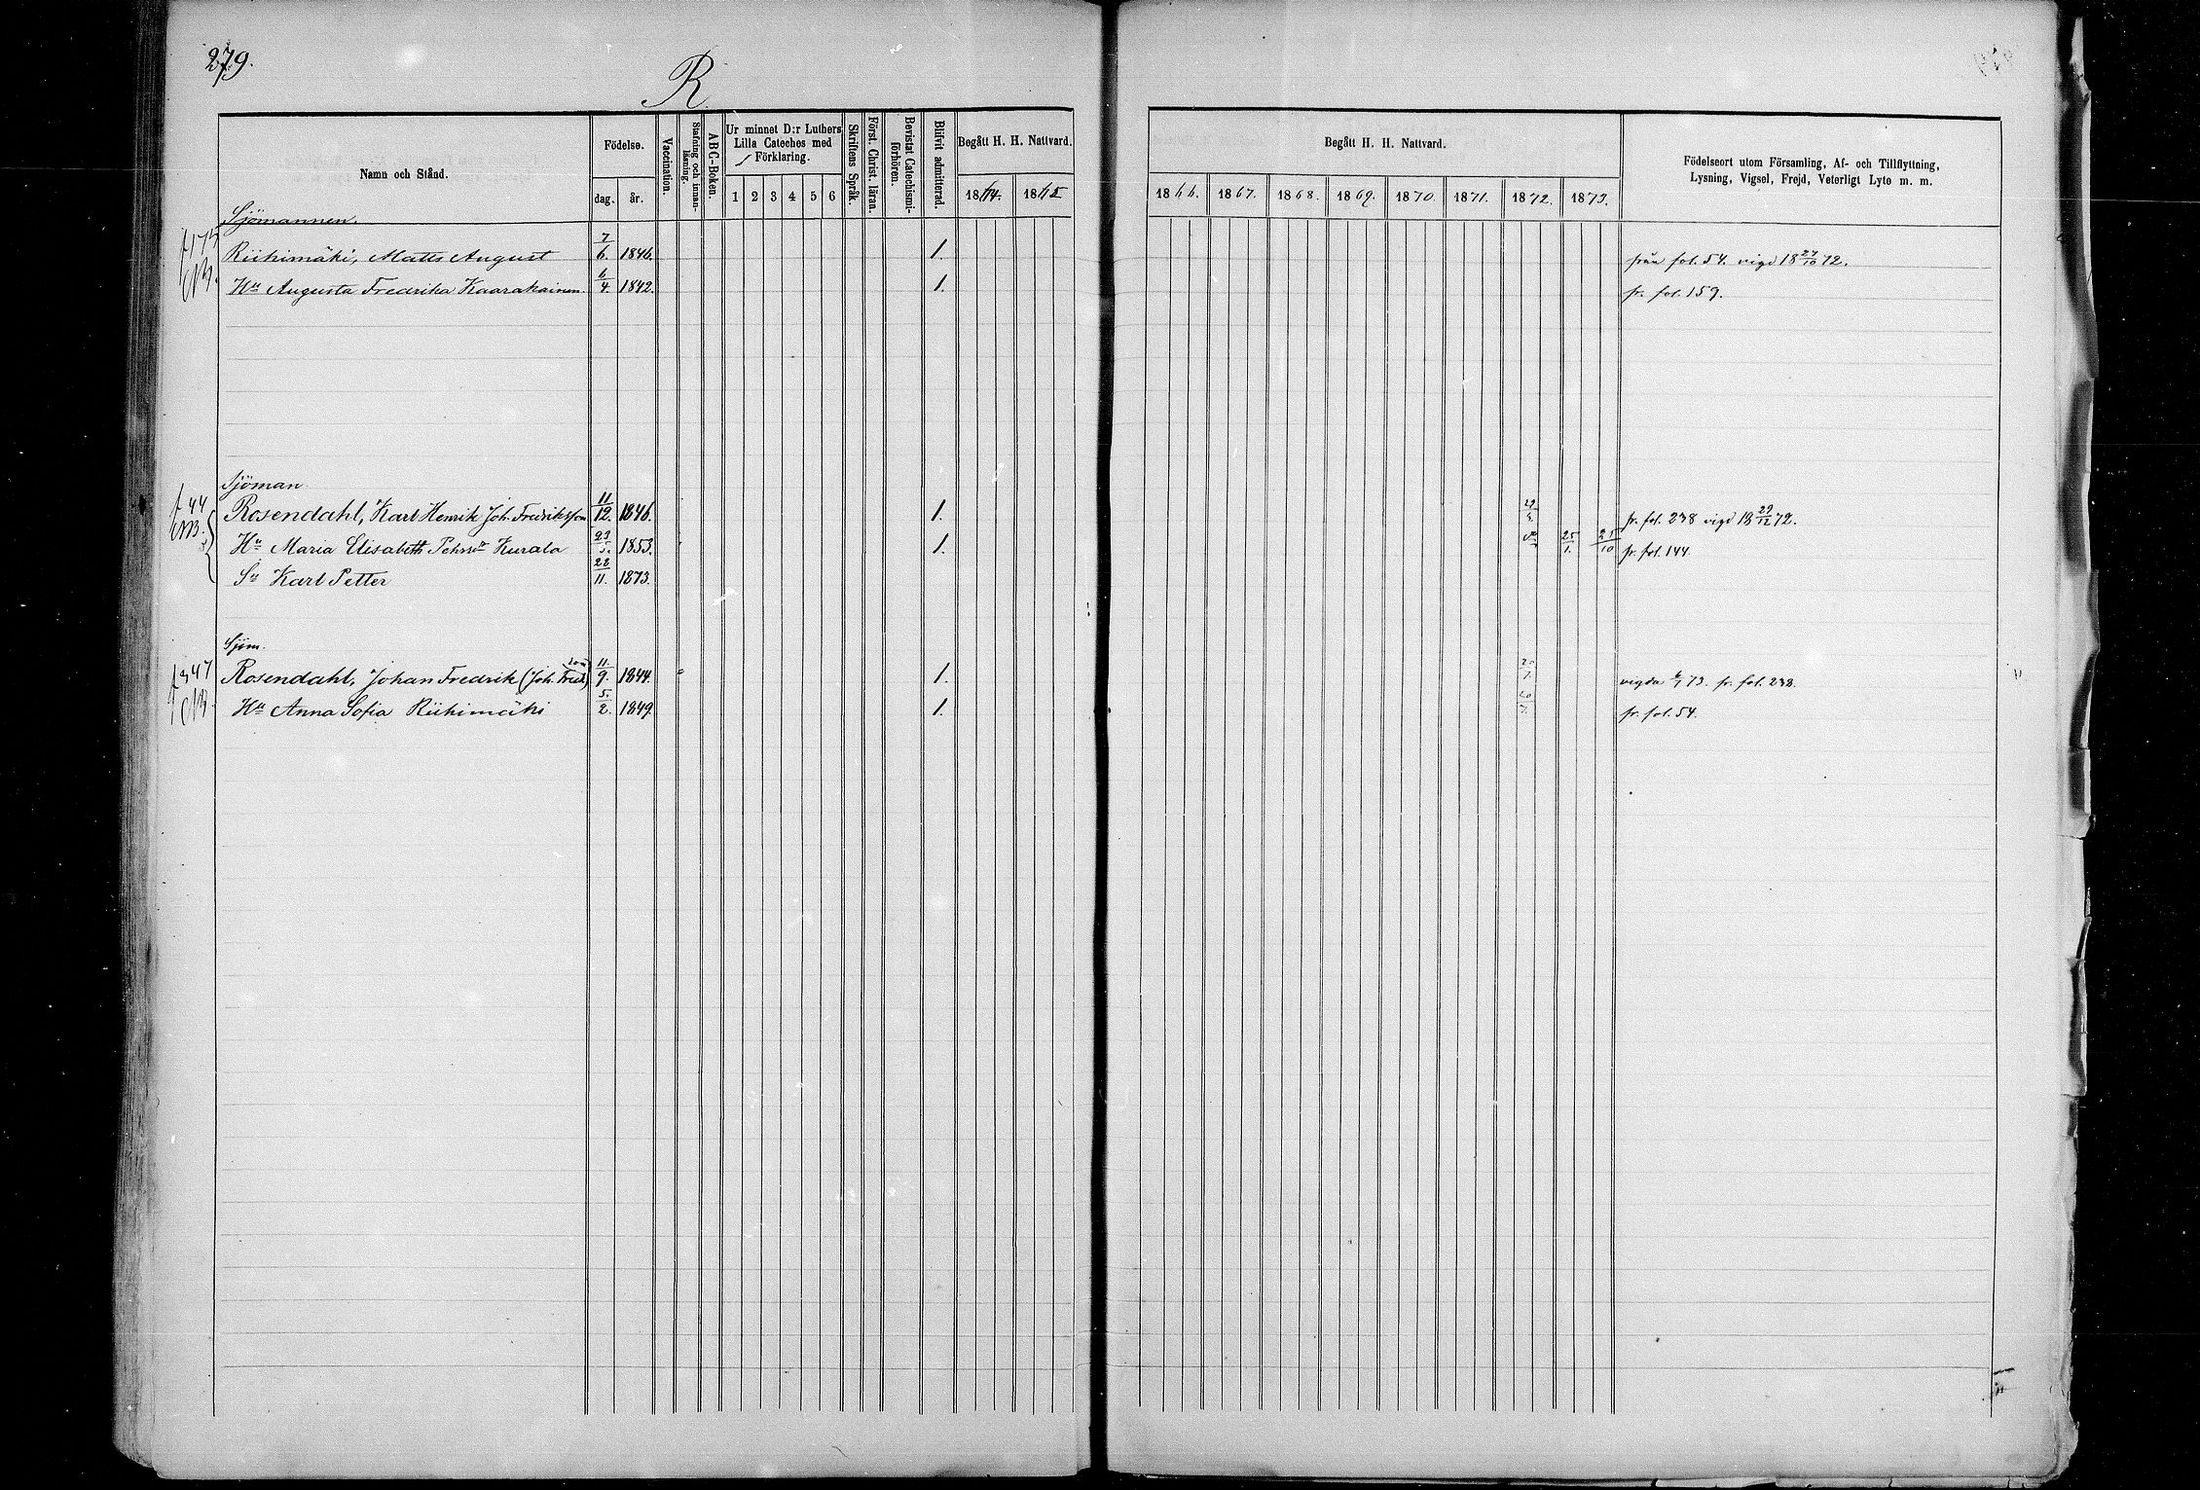 279.
R
Namn och Stånd.
Födelse.
dag.
år.
Vaccination.
Stafning och innan-läsning.
ABC-Boken.
Ur minnet D:r Luthers
Lilla Cateches med
Förklaring.
1 2 3 4 5 6
Skriftens Språk.
Först. Christ. läran.
Bevistat Catechismi-förhören.
Blifvit admitterad.
Begått H. H. Nattvard.
1864. 1865
Begått H. H. Nattvard.
1866. 1867. 1868. 1869. 1870. 1871. 1872. 1873.
Födelseort utom Församling, Af- och Tillflyttning,
Lysning, Vigsel, Frejd, Veterligt Lyte m. m.
Sjömannen.
f 175 Riihimäki, Matts August 7/6. 1846. 1. från fol. 54. vigd 18 27/10 72.
Hu Augusta Fredrika Kaarakainen. 6/4. 1842. 1. fr. fol. 159.
Sjöman
f 44 Rosendahl, Karl Henrik Joh. Fredriksson 11/12. 1846. 1. fr. fol. 238 vigd 18 29/12 72.
Hu Maria Elisabeth Kurala 23/5. 1853. 1. 25/1. 25/10 fr. fol. 144.
Sn Karl Petter 28/11. 1873.
Sjöm.
f 347 Rosendahl, Johan Fredrik (Joh. Fred. son) 11./9. 1844. 1. vigda 73. fr. fol. 238.
Hu Anna Sofia Riihimäki 5./2. 1849. 1. fr. fol. 54.